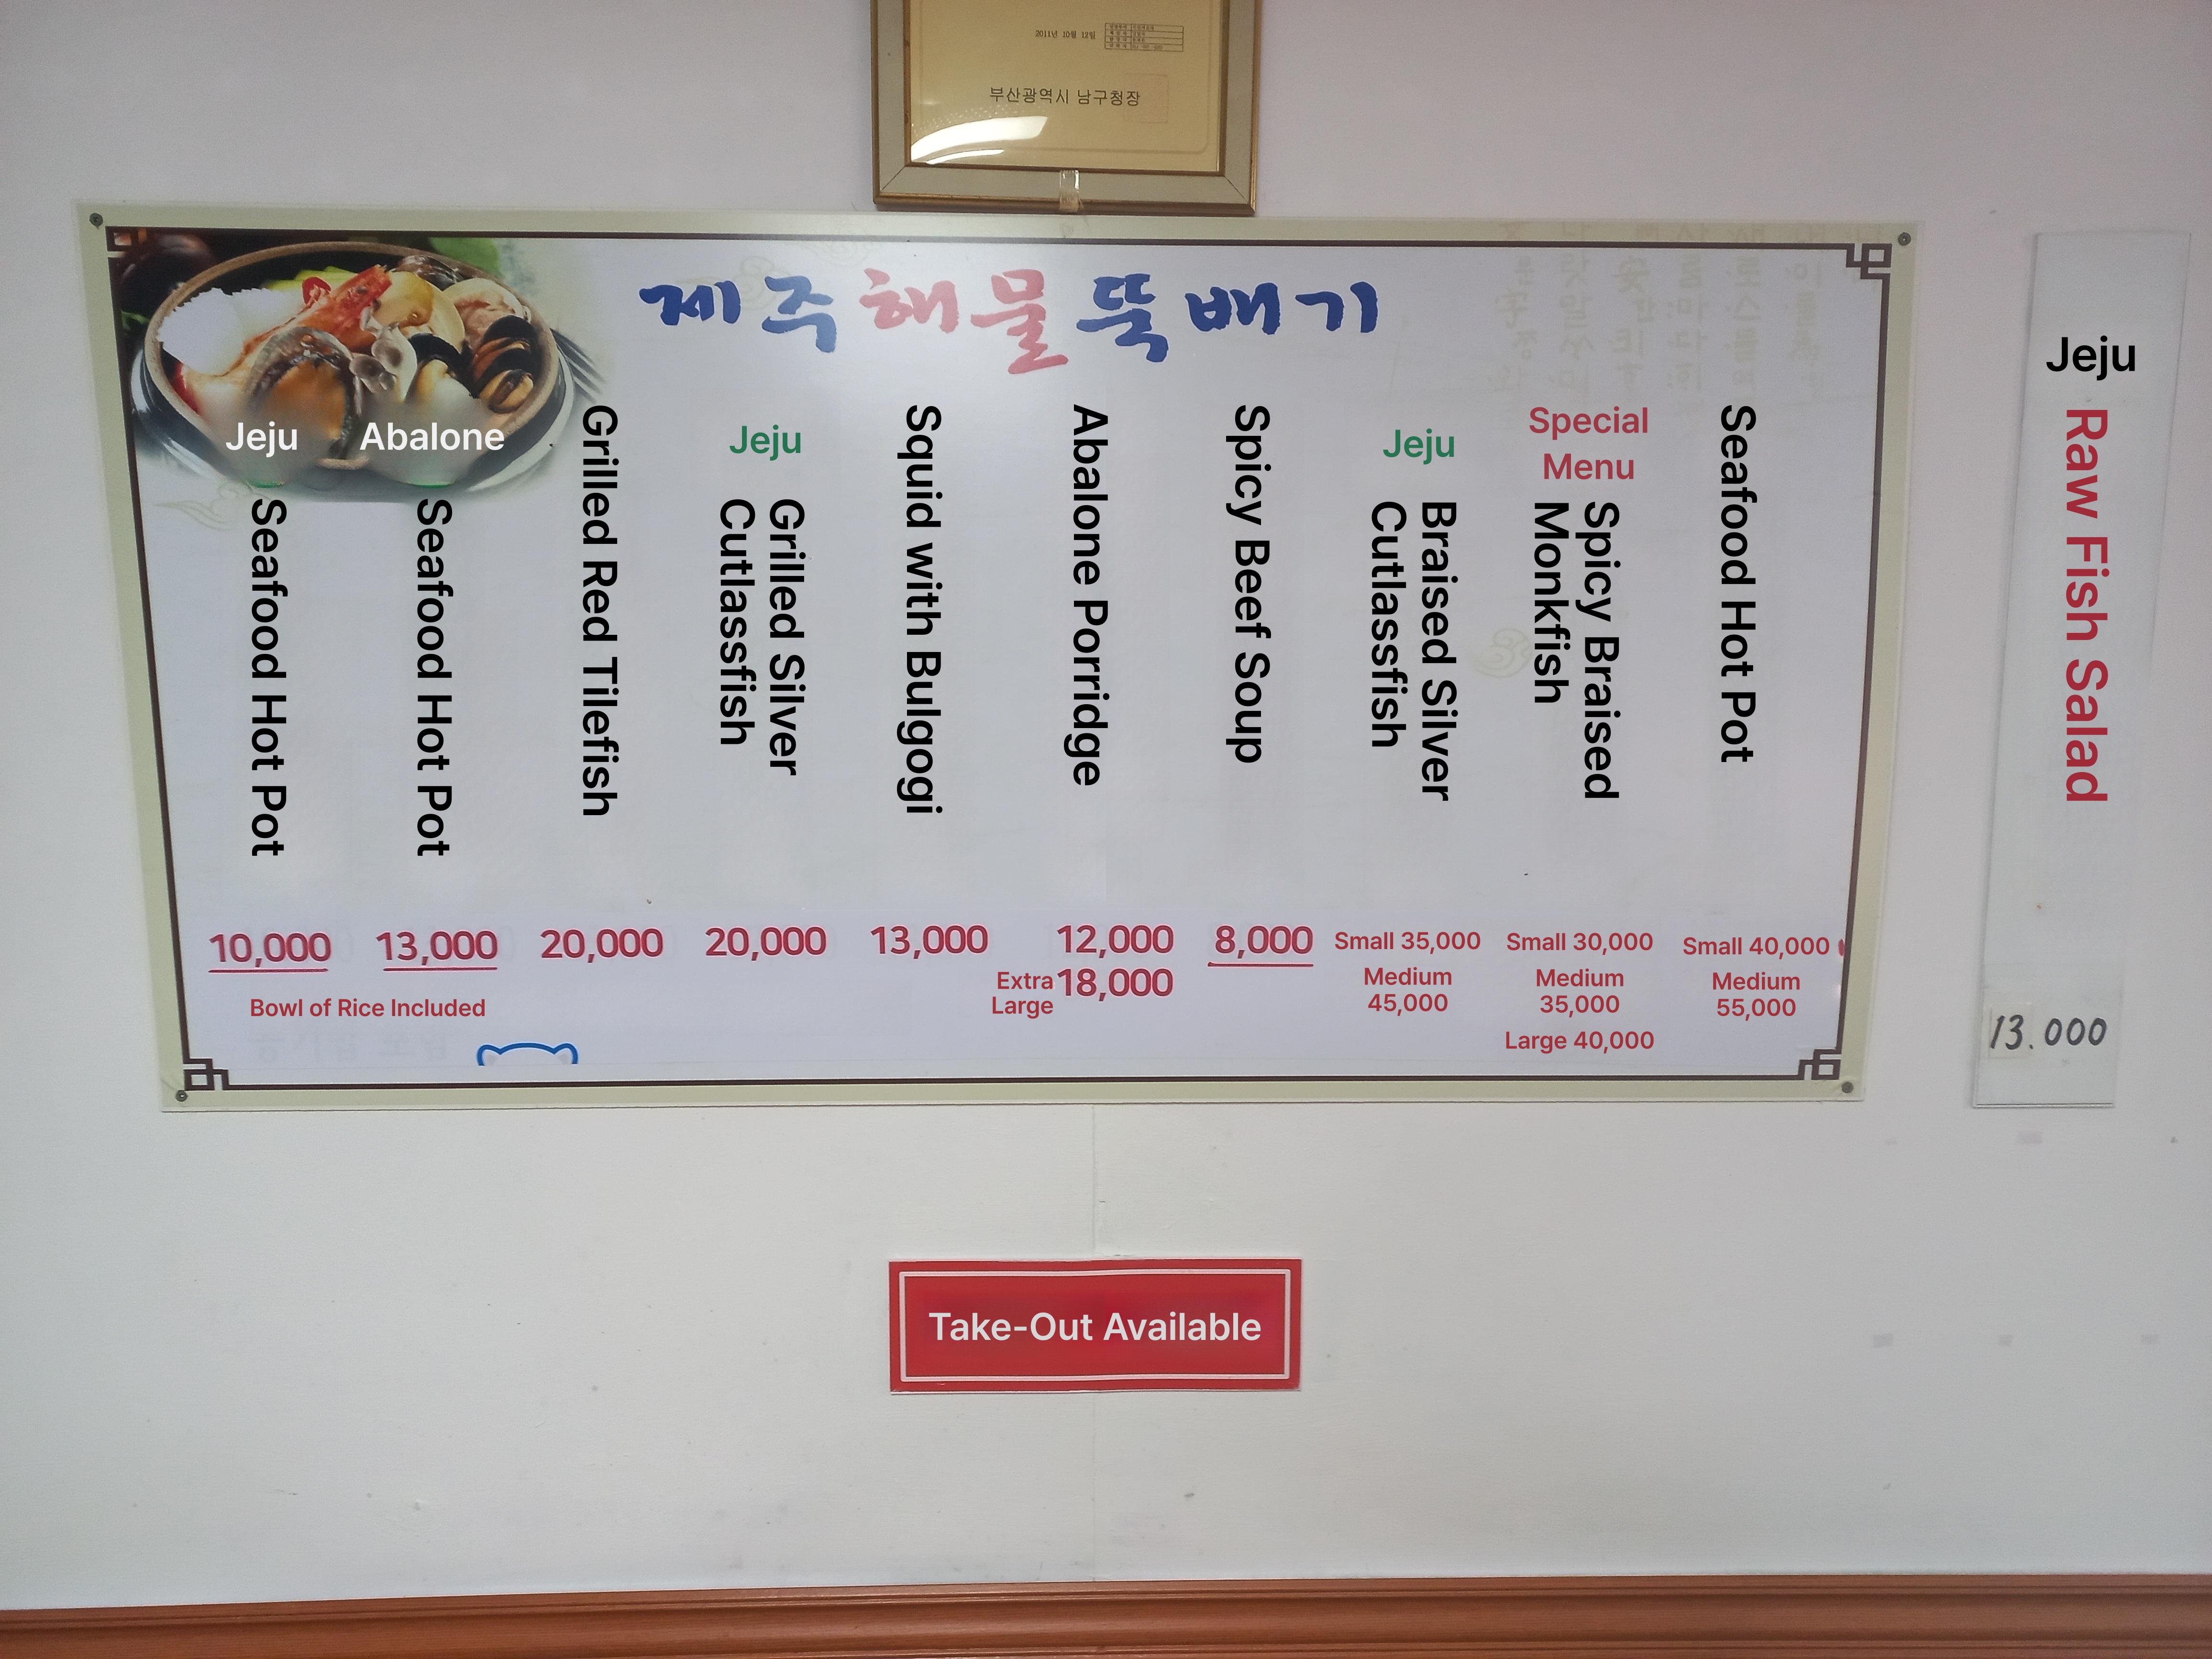 2011년 10월 12일
부산광역시 남구청장
제주해물뚝배기
Jeju
Seafood Hot Pot
10,000
Abalone
Seafood Hot Pot
13,000
Bowl of Rice Included
Grilled Red Tilefish
20,000
Jeju
Grilled Silver
Cutlassfish
20,000
Squid with Bulgogi
13,000
Abalone Porridge
12,000
Extra
Large
18,000
Spicy Beef Soup
8,000
Jeju
Braised Silver
Cutlassfish
Small 35,000
Medium
45,000
Special
Menu
Spicy Braised
Monkfish
Small 30,000
Medium
35,000
Large 40,000
Seafood Hot Pot
Small 40,000
Medium
55,000
Jeju
Raw Fish Salad
13.000
Take-Out Available